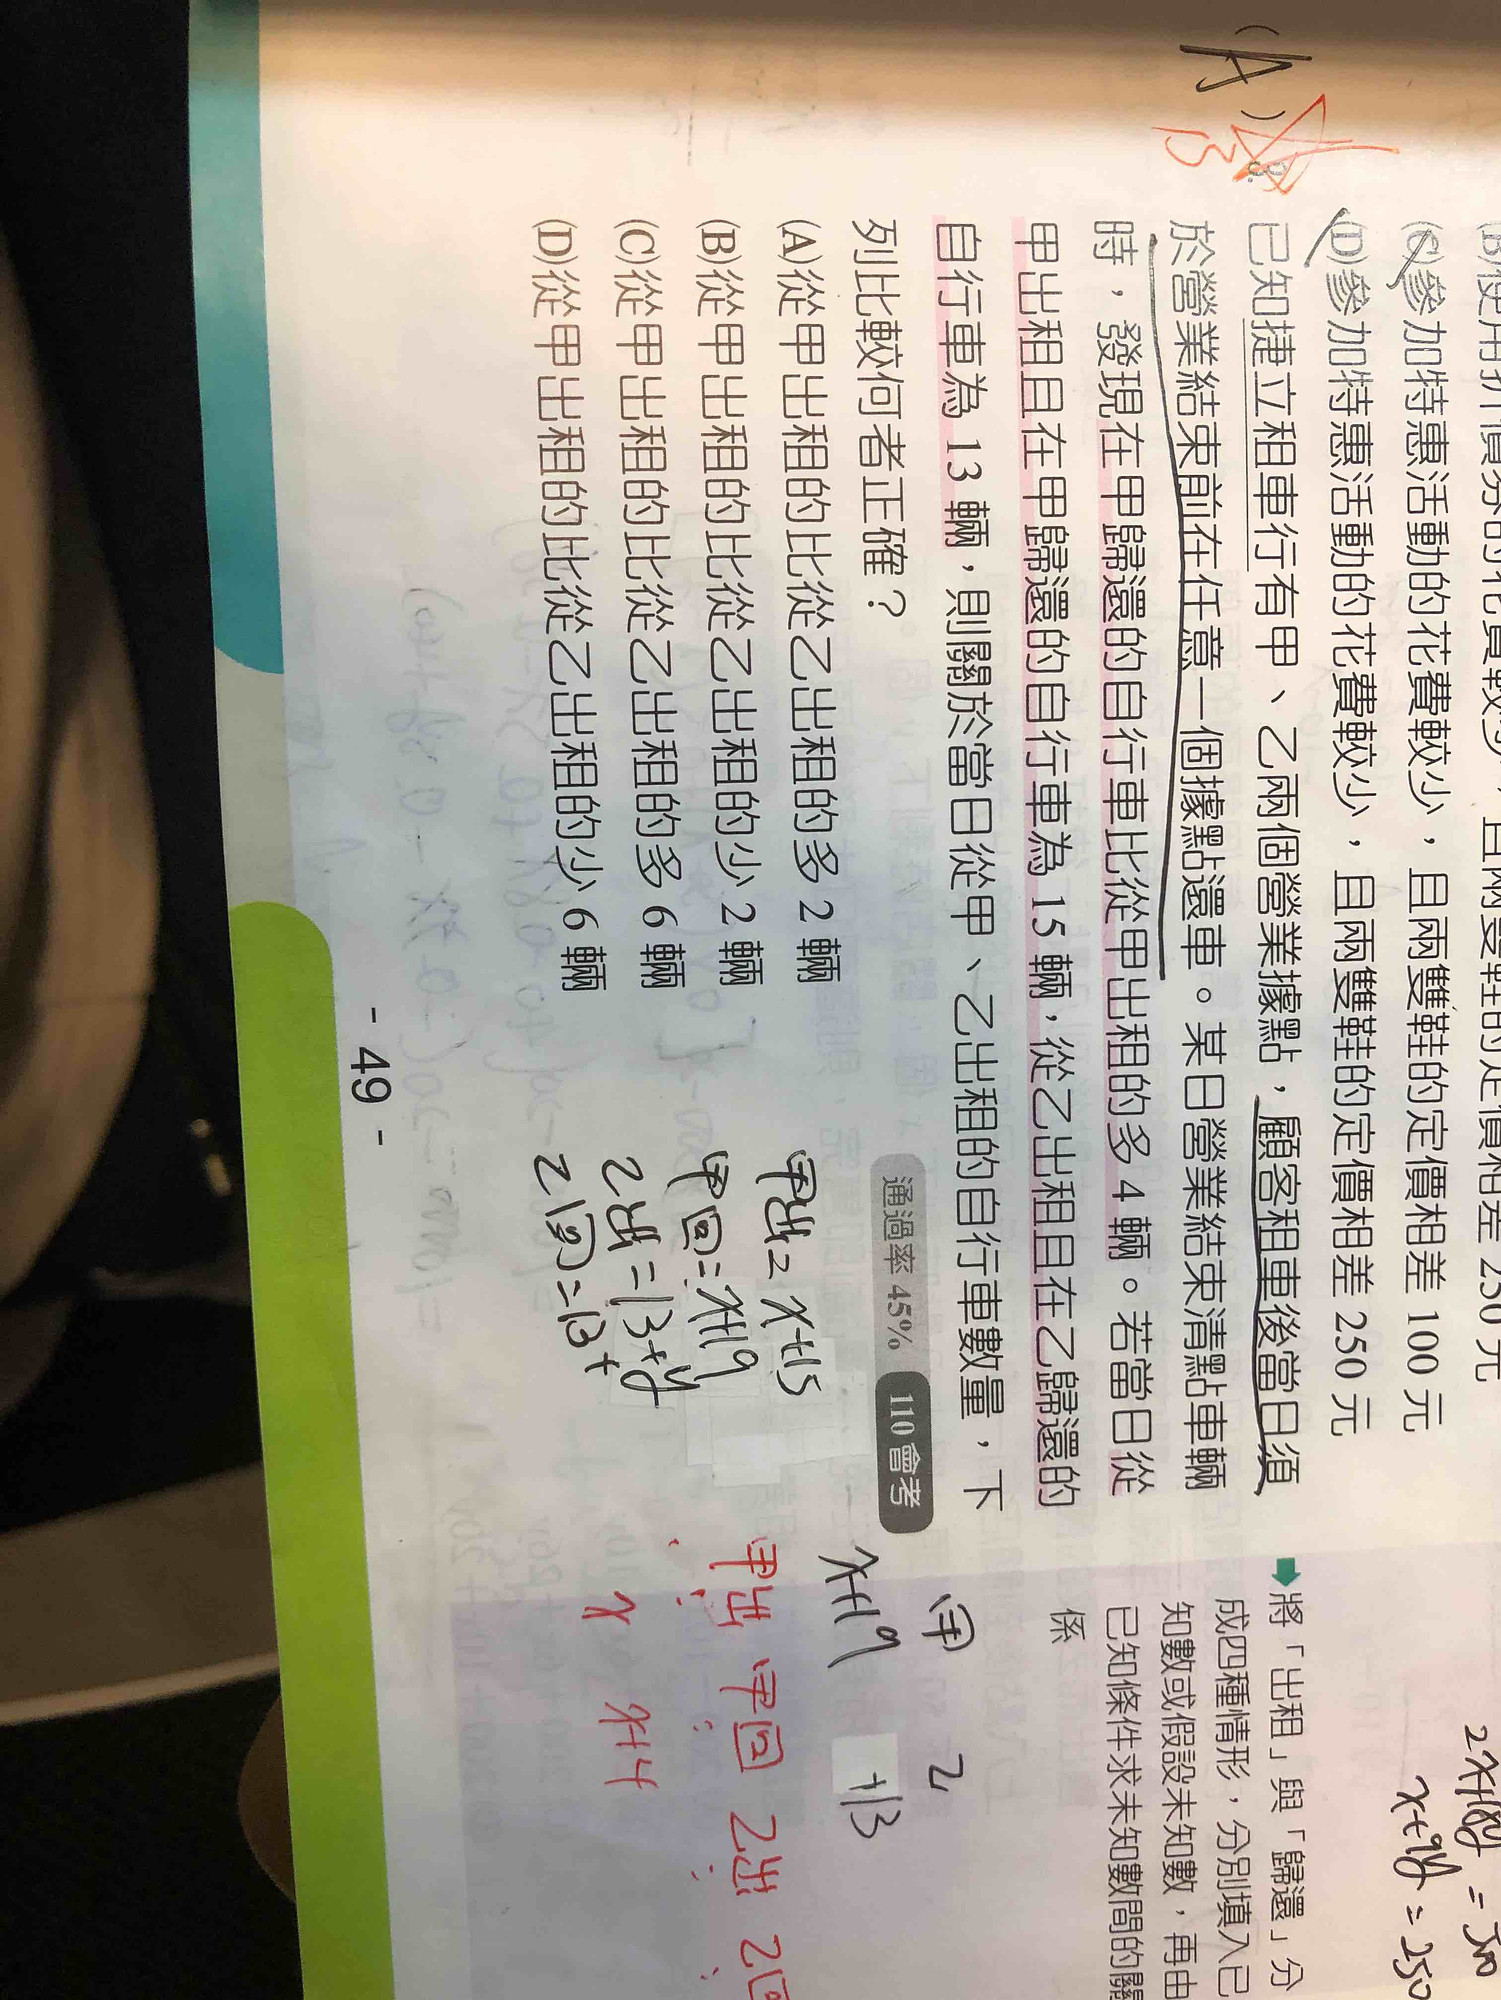 (C)參加特惠活動的花費較少,且兩雙鞋的定價相差 100 元
(D)參加特惠活動的花費較少,且兩雙鞋的定價相差 250 元
(A)
B
8.
已知捷立租車行有甲、乙兩個營業據點,顧客租車後當日須
於營業結束前在任意一個據點還車。某日營業結束清點車輛
時,發現在甲歸還的自行車比從甲出租的多 4 輛。若當日從
甲出租且在甲歸還的自行車為 15 輛,從乙出租且在乙歸還的
自行車為 13 輛,則關於當日從甲、乙出租的自行車數量,下
列比較何者正確?
通過率 45% 110 會考
(A)從甲出租的比從乙出租的多 2 輛
(B)從甲出租的比從乙出租的少 2 輛
(C)從甲出租的比從乙出租的多 6 輛
(D)從甲出租的比從乙出租的少 6 輛
甲出=x+15
甲回=x+19
乙出=13+y
乙回=13+
- 49 -
將「出租」與「歸還」分
成四種情形,分別填入已
知數或假設未知數,再由
已知條件求未知數間的關
係
甲 乙
x+19 +13
甲出 甲回 乙出 乙回
x x+4
x+9y=250